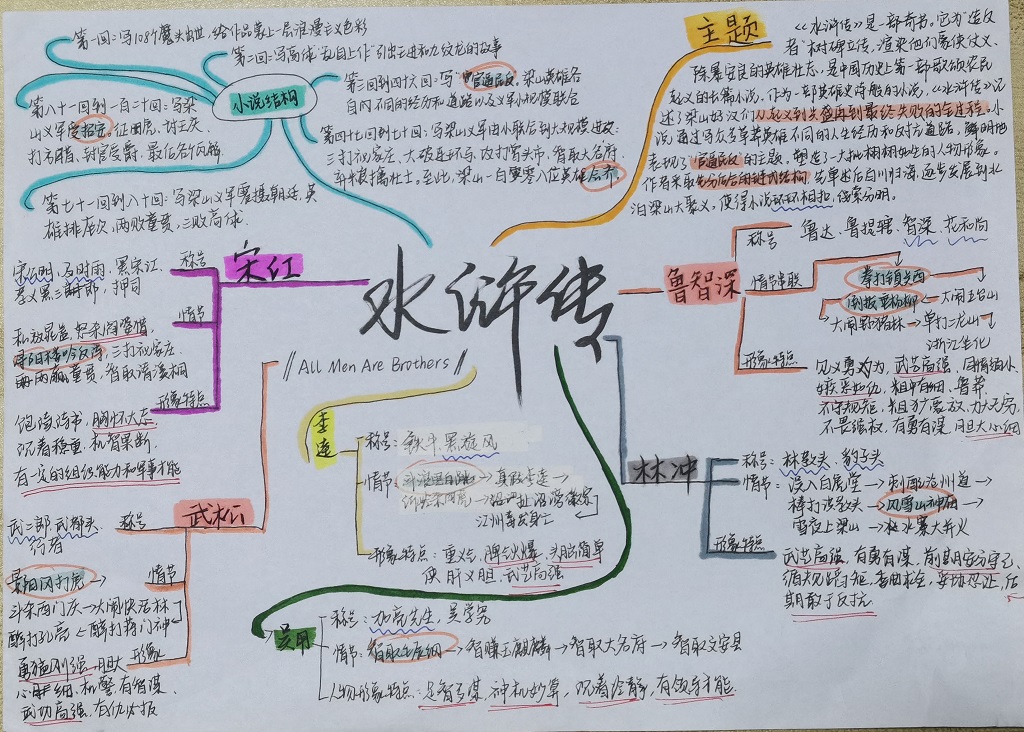 第一回:写108个魔头出世,给作品蒙上一层浪漫主义色彩
第二回:写高俅"乱自上作"引出王进和九纹龙的故事
小说结构
第三回到四十六回:写"官逼民反,梁山英雄各
自以不同的经历和道路以及义军小规模联合
第四十七回到七十回:写梁山义军由小联合到大规模进攻:
三打祝家庄、大破连环马、攻打曾头市,智取大名府,
至此,梁山一百零八位英雄
第八十一回到一百二十回:写梁
山义军受招安,征田虎、讨王庆、
打方腊、封官受爵,最后各个瓦解
第七十一回到八十回:写梁山义军震摄朝廷,英
雄排座次,两败童贯,三败高俅.
主题
《水浒传》是一部奇书。它为"造反
者"树碑立传,渲染他们豪侠仗义、
除暴安良的英雄壮志,是中国历史上第一部歌颂农民
起义的长篇小说,作为一部英雄史诗般的小说,《水浒传》记
述了梁山好汉们从起义到兴盛再到最终失败的全过程。小
说通过写众多草莽英雄不同的人生经历和反抗道路,鲜明地
表现了"官逼民反"的主题,塑造了一大批栩栩如生的人物形象。
作者采取先分后合的链式结构,先单述后百川归海,逐步发展到水
泊梁山大聚义,使得小说环环相扣,线索分明。
水浒传
//All Men Are Brothers//
宋江
称号
宋公明,及时雨,黑宋江,
孝义黑三郎,押司
情节
私放晁盖,怒杀阎婆惜,
浔阳楼吟反诗,三打祝家庄
两赢童贯,智取清溪桐
形象特点
饱读诗书,胸怀大志
沉着稳重,机智果断
有一定的组织能力和军事才能
鲁智深
称号
鲁达、鲁提辖、智深、花和尚
情节串联
拳打镇关西
倒拔垂杨柳←大闹五台山
大闹野猪林→单打二龙山
浙江坐化
形象特点
见义勇为,武艺高强,同情弱小
嫉恶如仇,粗中有细,鲁莽
不守规矩,粗犷豪放,力大无穷
不畏强权,有勇有谋,胆大心细
武松
称号
武二郎、武都头、
行者
情节
景阳冈打虎→
斗杀西门庆→大闹快活林
醉打孔亮←醉打蒋门神
形象
勇猛刚强、胆大
心细、机警有智谋、
武功高强、有仇必报
李逵
称号:铁牛、黑旋风
情节:
→真假李逵→
江州
形象特点:重义气,脾气火爆,头脑简单
侠肝义胆,武艺高强
林冲
称号:林教头、豹子头
情节:误入白虎堂→刺配沧州道→
棒打洪教头→风雪山神庙→
雪夜上梁山→水寨大并火
形象特点
武艺高强,有勇有谋,前期安分守己,
循规蹈矩,委曲求全,妥协忍让,后
期敢于反抗
吴用
称号:加亮先生,吴学究
情节:智取生辰纲→智赚玉麒麟→智取大名府→智取文安县
人物形象特点:足智多谋,神机妙算,沉着冷静,有领导才能.